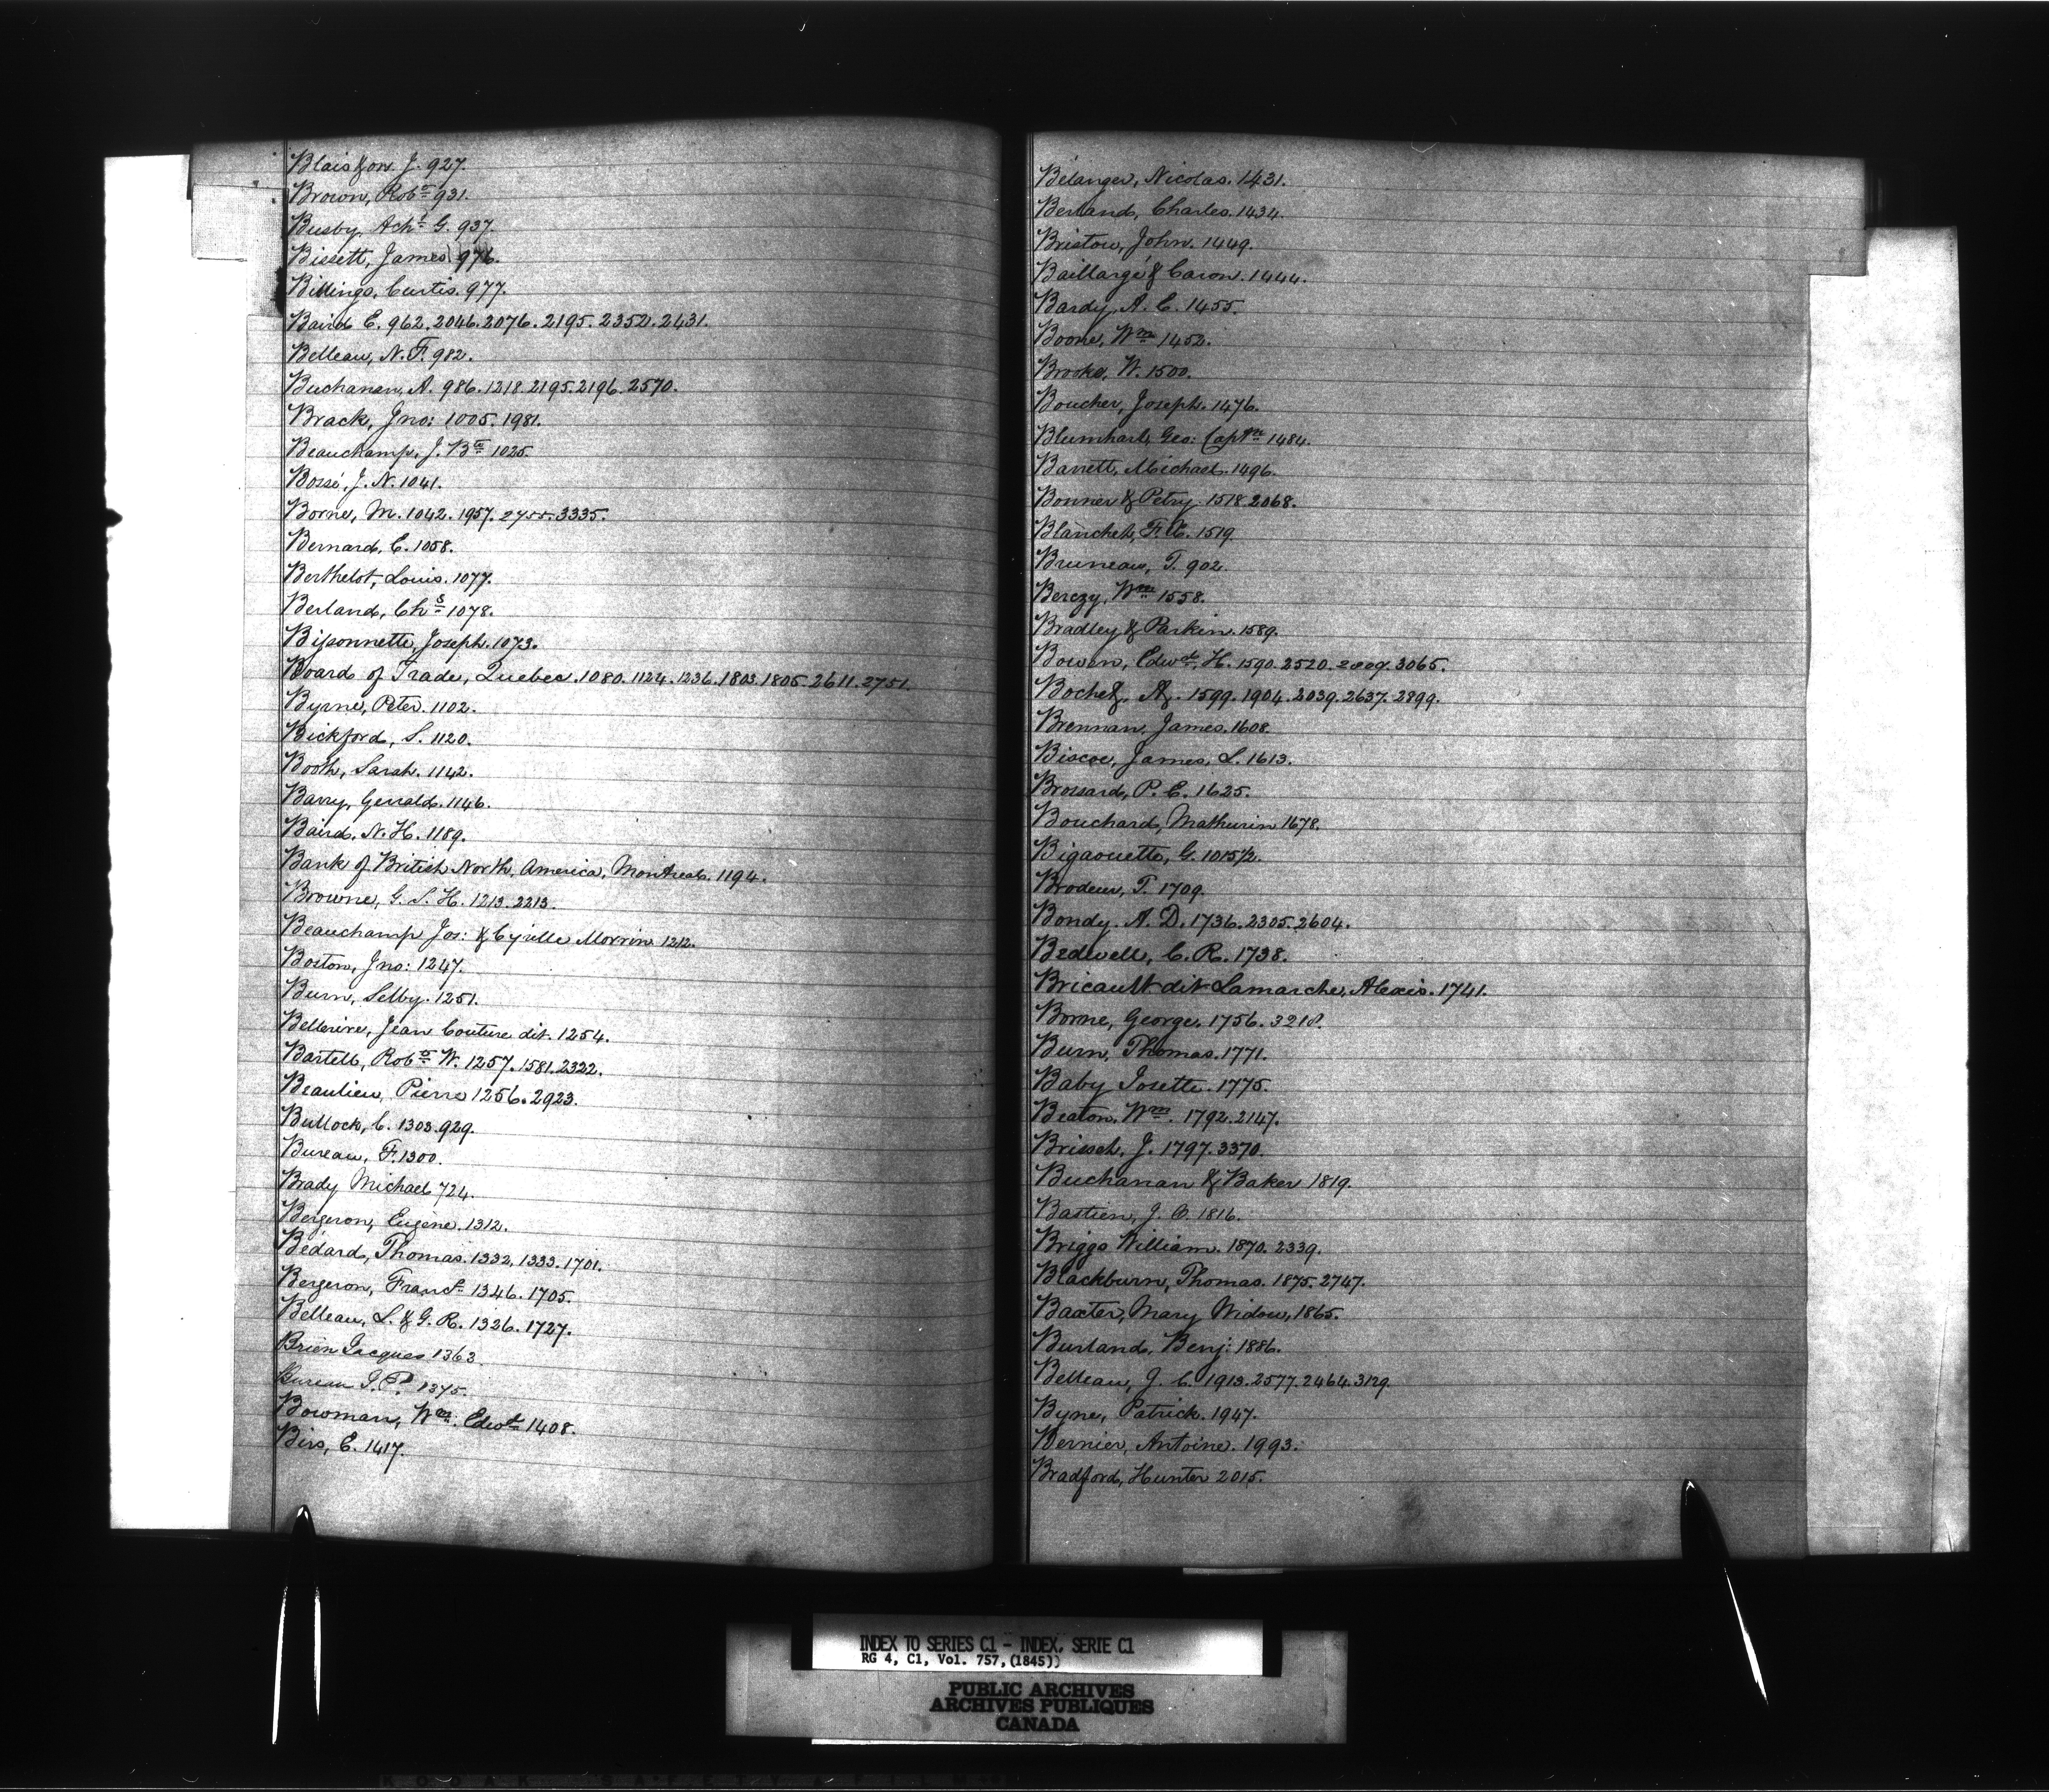 Blaisfon J. 927.
Brown, Robt 931.
Busby, Achs G. 937.
Bissett, James 976.
Billings, Curtis. 977.
Baird E. 962. 2046. 2076. 2195. 2352. 2431.
Belleau, N. F. 982.
Buchanan, A. 986. 1218. 2195. 2196. 2570.
Brack, Jno: 1005. 1981.
Beauchamp, J. Bte 1025.
Bossé, J. N. 1041.
Borne, M. 1042. 1957. 2755. 3335.
Bernard, C. 1058.
Berthelot, Louis. 1077.
Berland, Chs 1078.
Bissonnette, Joseph. 1073.
Board of Trade, Quebec. 1080. 1124. 1236. 1803. 1805. 2611. 2751.
Byrne, Peter. 1102.
Bickford, S. 1120.
Booth, Sarah. 1142.
Barry, Gerrald. 1146.
Baird, N. H. 1189.
Bank of British North America, Montreal. 1194.
Browne, G. S. H. 1213. 2213.
Beauchamp Jos: & Cyrille Morrin 1212.
Boston, Jno: 1247.
Burn, Selby. 1251.
Bellerive, Jean Couture dit. 1254.
Bartell, Robt W. 1257. 1581. 2322.
Beaulieu, Pierre 1256. 2923.
Bullock, C. 1303. 929.
Bureau, F. 1300.
Brady Michael 724.
Bergeron, Eugène. 1312.
Bédard, Thomas. 1332. 1333. 1701.
Bergeron, Francs 1346. 1705.
Belleau, L. & G. R. 1326. 1727.
Brien Jacques 1363.
Bureau J. P. 1375.
Bowman, Wm. Edwd 1408.
Birs, E. 1417.
Bélanger, Nicolas. 1431.
Berland, Charles. 1434.
Bristow, John. 1449.
Baillargé & Caron. 1444.
Bardy, A. C. 1455.
Boone, Wm 1452.
Brooke, W. 1500.
Boucher, Joseph. 1476.
Blumhart, Geo: Captn 1484.
Barrett, Michael. 1496.
Bonner & Petry. 1518. 2068.
Blanchet, F. X. 1519.
Bruneau, T. 902.
Berczy, Wm 1558.
Bradley & Parkin. 1589.
Bowen, Edwd. H. 1590. 2520. 2009. 3065.
Bochet, A. 1599. 1904. 2039. 2637. 2899.
Brennan, James. 1608.
Biscoe, James, L. 1613.
Brossard, P. E. 1625.
Bouchard, Mathurin 1678.
Bigaouette, G. 1015½.
Brodeur, T. 1709.
Bondy. A. D. 1736. 2305. 2604.
Bedwell, C. R. 1738.
Bricault dit Lamarche, Alexis. 1741.
Borne, George. 1756. 3218.
Burn, Thomas. 1771.
Baby Josette. 1775.
Beaton, Wm. 1792. 2147.
Brisset, J. 1797. 3370.
Buchanan & Baker 1819.
Bastien, J. O. 1816.
Briggs William. 1870. 2339.
Blackburn, Thomas. 1875. 2747.
Baxter, Mary Widow, 1865.
Burland, Benj: 1886.
Belleau, J. C. 1913. 2577. 2464. 3129.
Byne, Patrick. 1947.
Bernier, Antoine. 1993.
Bradford, Hunter 2015.
INDEX TO SERIES C1 - INDEX, SERIE C1
RG 4, C1, Vol. 757, (1845))
PUBLIC ARCHIVES
ARCHIVES PUBLIQUES
CANADA